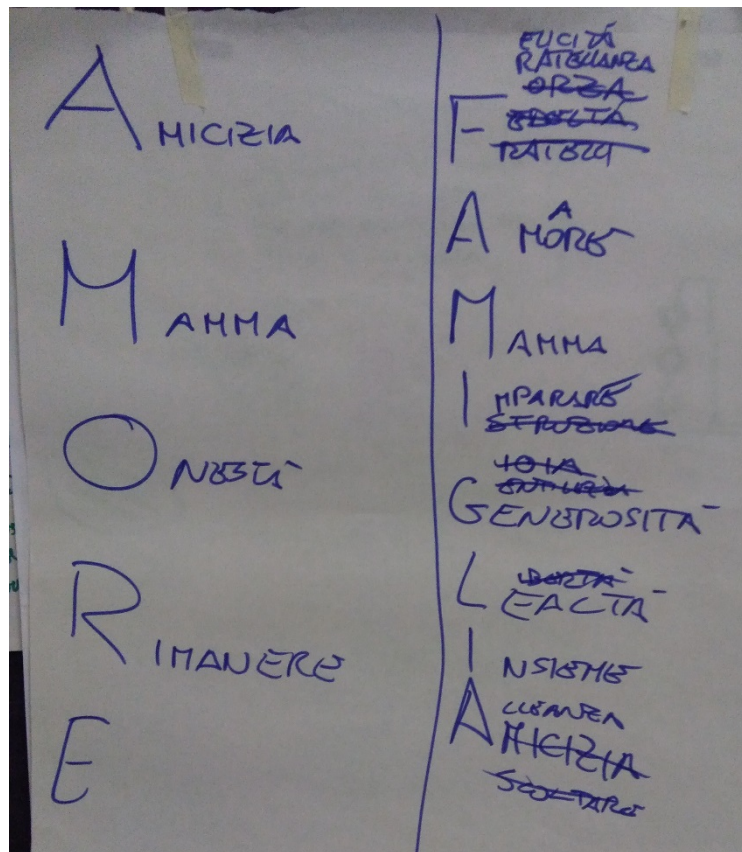 AMICIZIA
MAMMA
ONESTÀ
RIMANERE
E
ELICITÀ
RATELLANZA
ORZA
EDELTÀ
F
RATELLI
A
AMORE
MAMMA
IMPARARE
STRUZIONE
IOIA
GENEROSITÀ
LIBERTÀ
LEALTÀ
INSIEME
LLEANZA
AMICIZIA
SCOLTARE